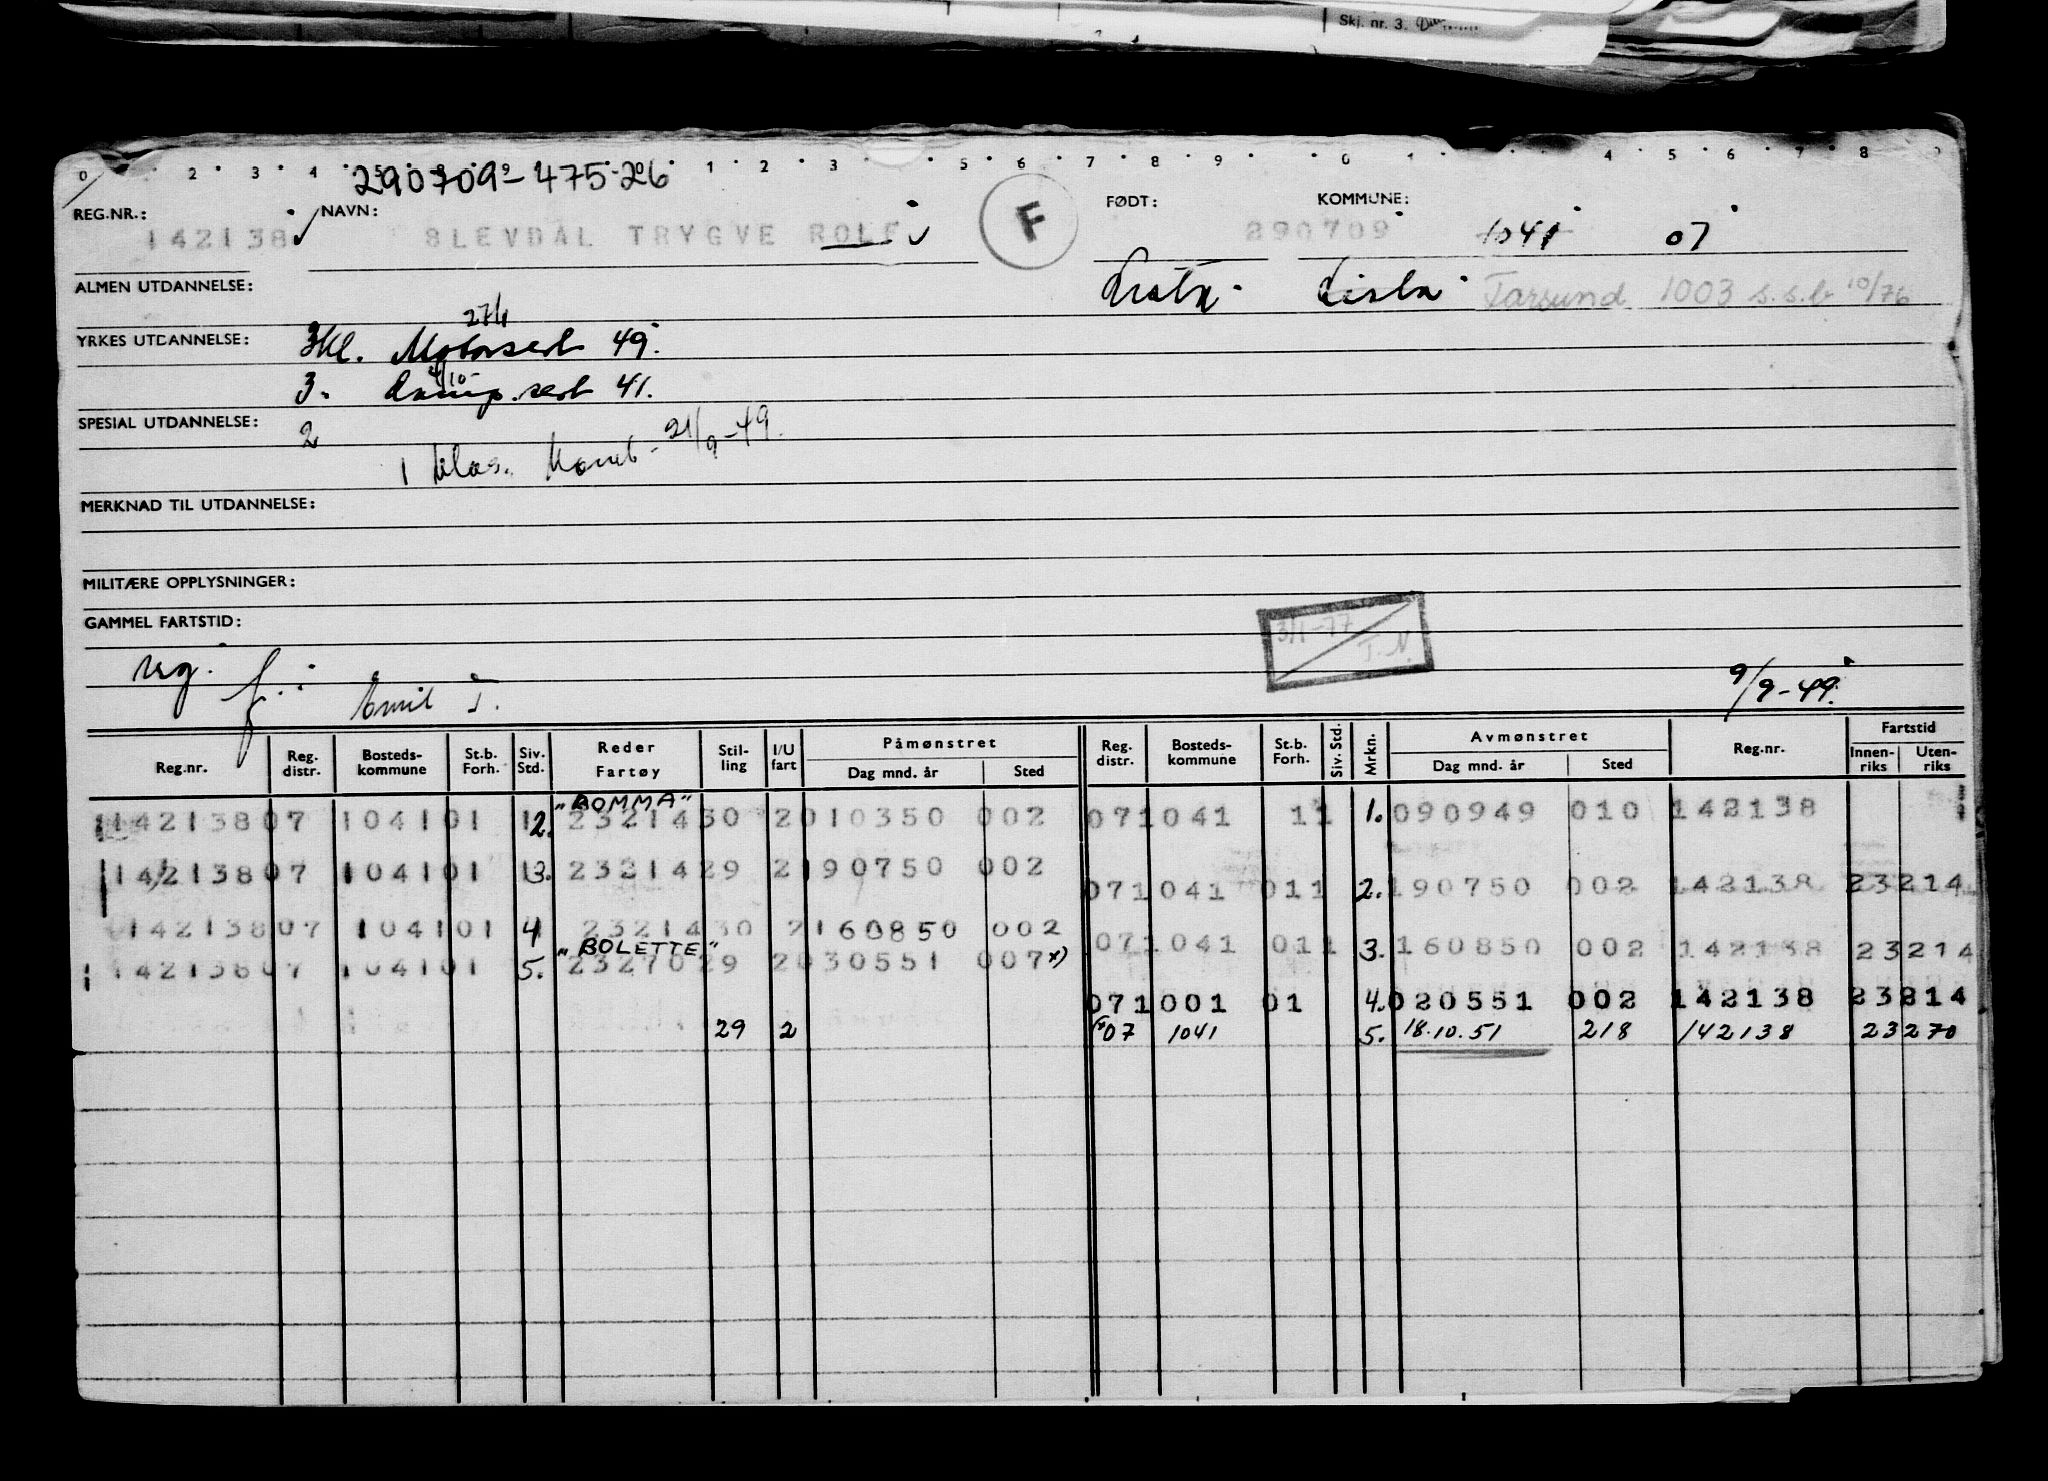 Skj. nr. 3.
0 2 3 4 1 2 3 5 6 7 8 9 0 1 4 5 6 7 8
290709-475-26
REG.NR.: NAVN: F FØDT: KOMMUNE:
142138 SLEVDAL TRYGVE ROLF 290709 1041 07
ALMEN UTDANNELSE: Lista Lista Farsund 1003 s.s.b 10/76
27/6
YRKES UTDANNELSE: 3kl. Motorsert 49.
4/10-
3. Damp.sert 41.
SPESIAL UTDANNELSE: 2
1 klas. 21/9-49.
MERKNAD TIL UTDANNELSE:
MILITÆRE OPPLYSNINGER:
GAMMEL FARTSTID:
3/1-77 T.N.
reg. f. Emil T. 9/9-49.
Reg.nr. Reg. distr. Bosteds-kommune St.b. Forh. Siv. Std. Reder Fartøy Stil-ling I/U fart Påmønstret Dag mnd. år Sted Reg. distr. Bosteds-kommune St.b. Forh. Siv. Std. Mrkn. Avmønstret Dag mnd. år Sted Reg.nr. Fartstid Innen-riks Uten-riks
"BOMMA"
142138 07 1041 01 1 2. 23214 30 2 010350 002 07 1041 11 1. 090949 010 142138
142138 07 1041 01 1 3. 23214 29 2 190750 002
07 1041 011 2. 190750 002 142138 23214
142138 07 1041 01 4 23214 30 2 160850 002
"BOLETTE" 07 1041 011 3. 160850 002 142138 23214
142138 07 1041 01 5. 23270 29 2 030551 007 x)
07 1001 01 4. 020551 002 142138 23214
29 2 07 1041 5. 18.10.51 218 142138 23270